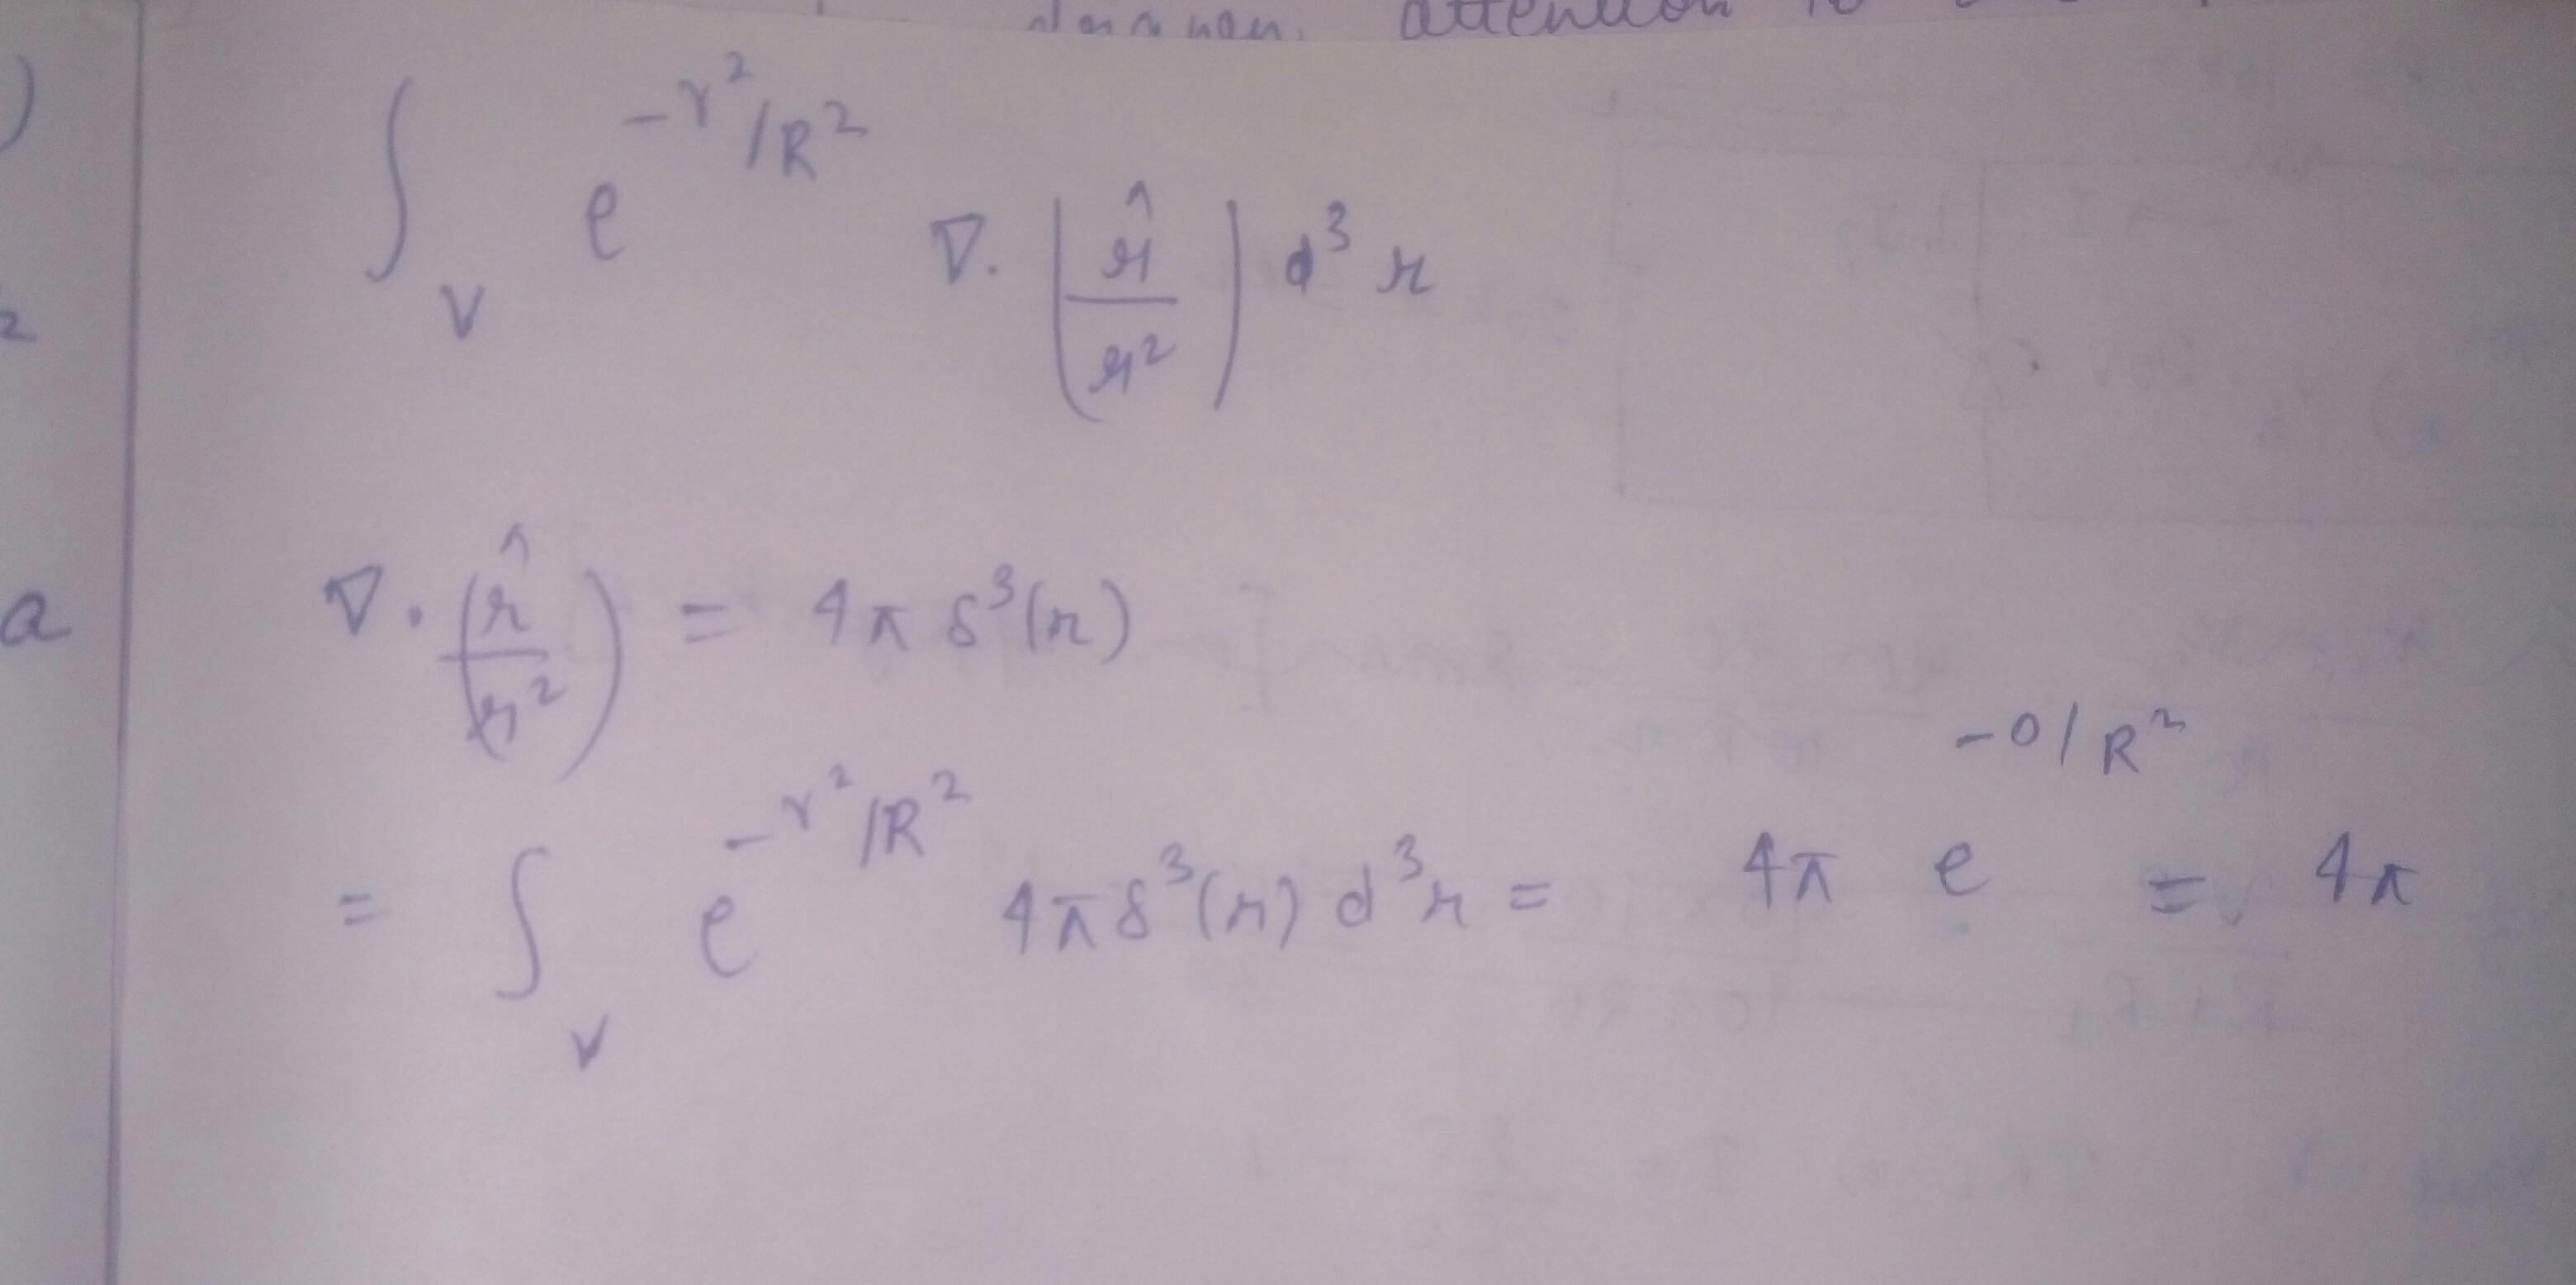 attention to
)
∫_V e^{-r²/R²} ∇·(r̂/r²) d³r
2
a ∇·(r̂/r²) = 4π δ³(r)
= ∫_V e^{-r²/R²} 4π δ³(r) d³r = 4π e^{-0/R²} = 4π